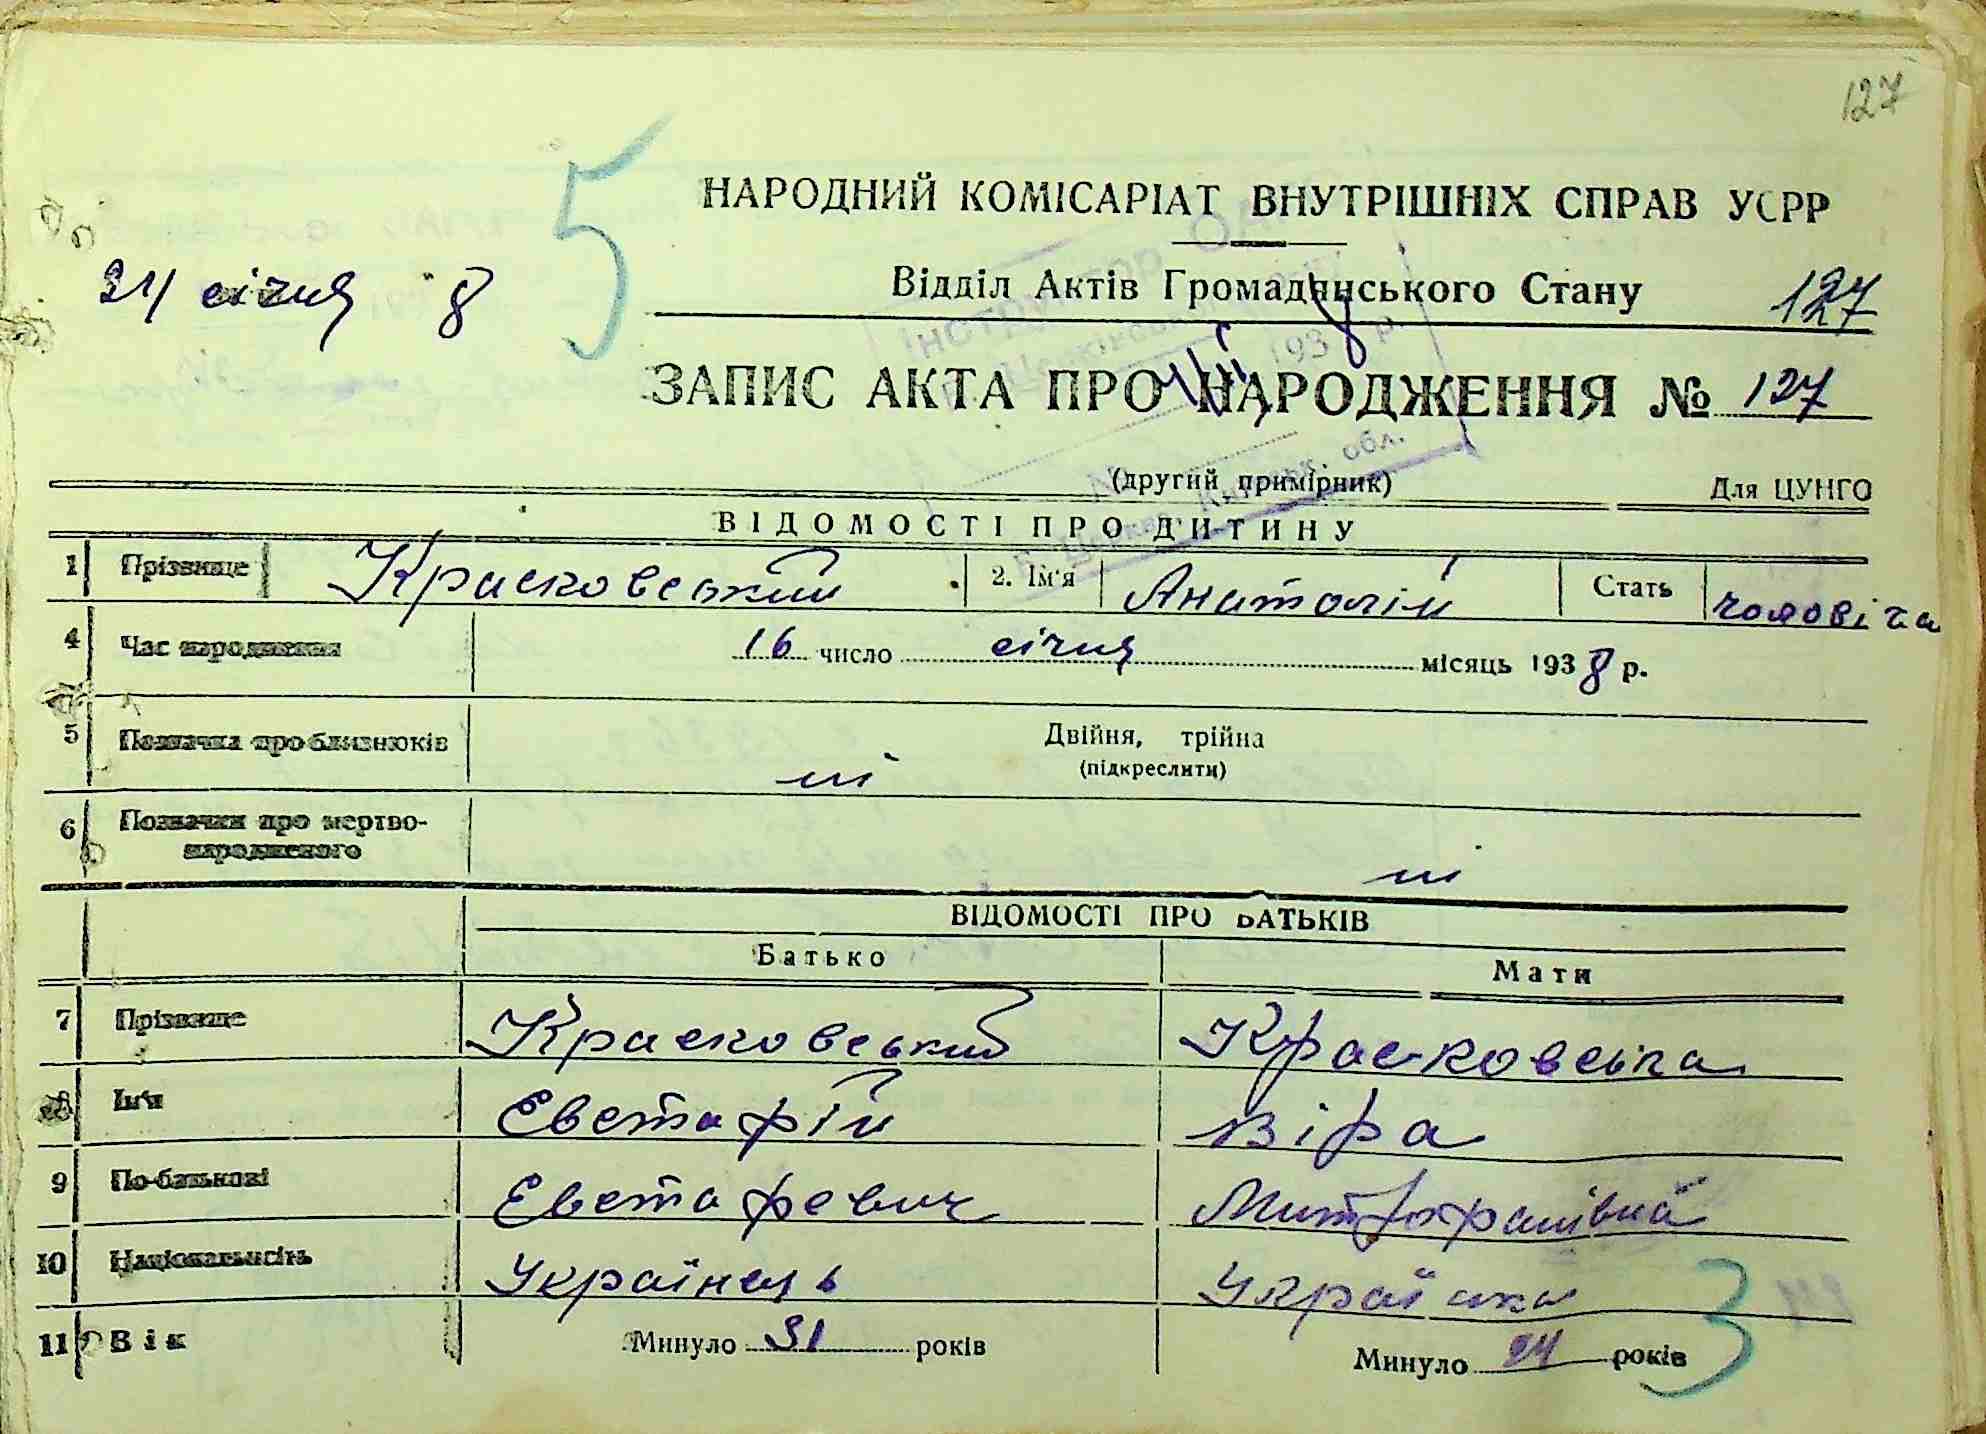 127
НАРОДНИЙ КОМІСАРІАТ ВНУТРІШНІХ СПРАВ УСРР
24 січня 8
5
Відділ Актів Громадянського Стану
127
ЗАПИС АКТА ПРО НАРОДЖЕННЯ № 127
193 8 р.
(другий примірник)
Для ЦУНГО
ВІДОМОСТІ ПРО ДИТИНУ
1 Прізвище Красковський 2. Ім'я Анатолій Стать чоловіча
4 Час народження 16 число січня місяць 1938 р.
5 Позначка про близнюків Двійня, трійна
(підкреслити)
ні
6 Позначки про мертво-
народженого
ні
ВІДОМОСТІ ПРО БАТЬКІВ
Батько Мати
7 Прізвище Красковський Красковська
8 Ім'я Евстафій Віра
9 По-батькові Евстафевич Митрофанівна
10 Національність Українець Українка
11 Вік Минуло 31 років Минуло 24 років
3